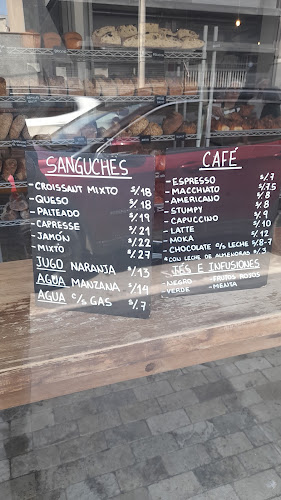 SANGUCHES
- CROISSAUT MIXTO S/. 18
- QUESO S/. 18
- PALTEADO S/. 19
- CAPRESSE S/. 21
- JAMÓN S/. 22
- MIXTO S/. 27
JUGO NARANJA S/. 13
AGUA MANZANA S/. 14
AGUA C/S GAS S/. 7
CAFÉ
- ESPRESSO S/. 7
- MACCHIATO S/. 7.5
- AMERICANO S/. 8
- STUMPY S/. 8
- CAPUCCINO S/. 9
- LATTE S/. 10
- MOKA S/. 12
- CHOCOLATE C/S LECHE S/. 8-7
* CON LECHE DE ALMENDRAS S/. 3
TÉS E INFUSIONES
- NEGRO - FRUTOS ROJOS
- VERDE - MENTA